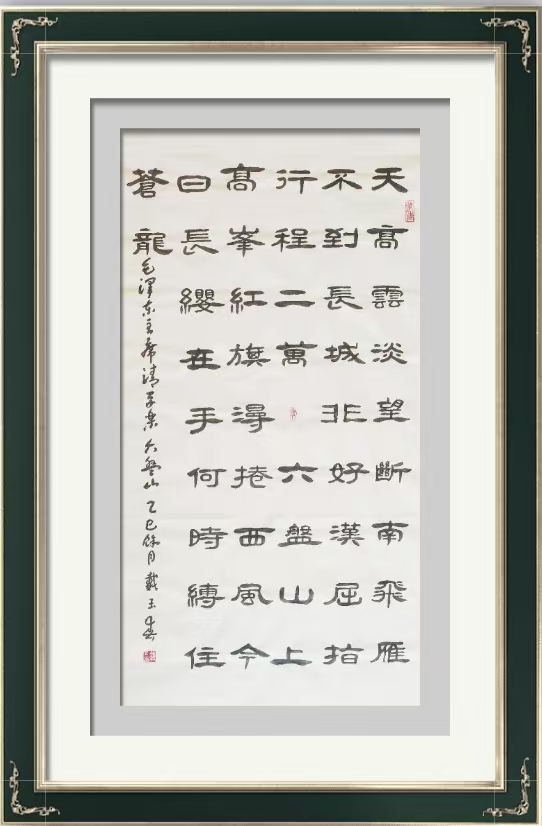 天高雲淡望斷南飛雁
不到長城非好漢屈指
行程二萬六盤山上
高峯紅旗漫捲西風今
日長纓在手何時縛住
蒼龍
毛澤东主席清平樂六盤山乙巳月戴玉春